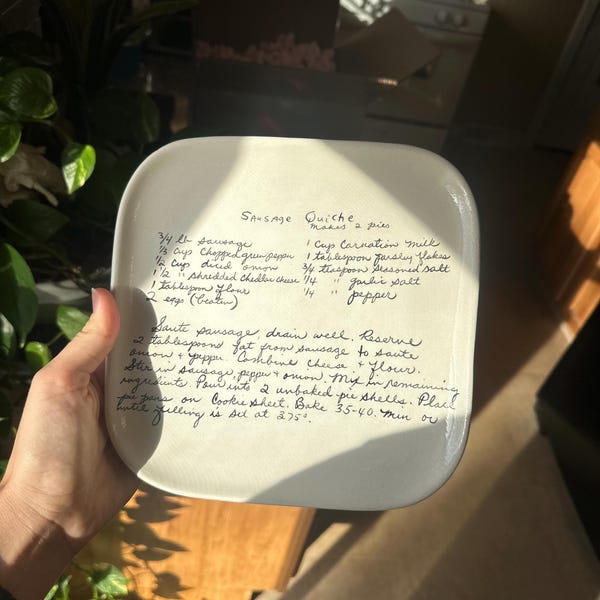 Sausage Quiche
Makes 2 pies
3/4 lb sausage
1/3 cup chopped green pepper
1/2 cup diced onion
1 1/2 " shredded chedder cheese
1 tablespoon flour
2 eggs (beaten)
1 cup Carnation Milk
1 tablespoon parsley flakes
3/4 teaspoon seasoned salt
1/4 " garlic salt
1/4 " pepper
Saute sausage, drain well. Reserve
2 tablespoons fat from sausage to saute
onion + pepper. Combine cheese + flour.
Stir in sausage, pepper + onion. Mix in remaining
ingredients. Pour into 2 unbaked pie shells. Place
pie pans on cookie sheet. Bake 35-40 min or
until filling is set at 375°.